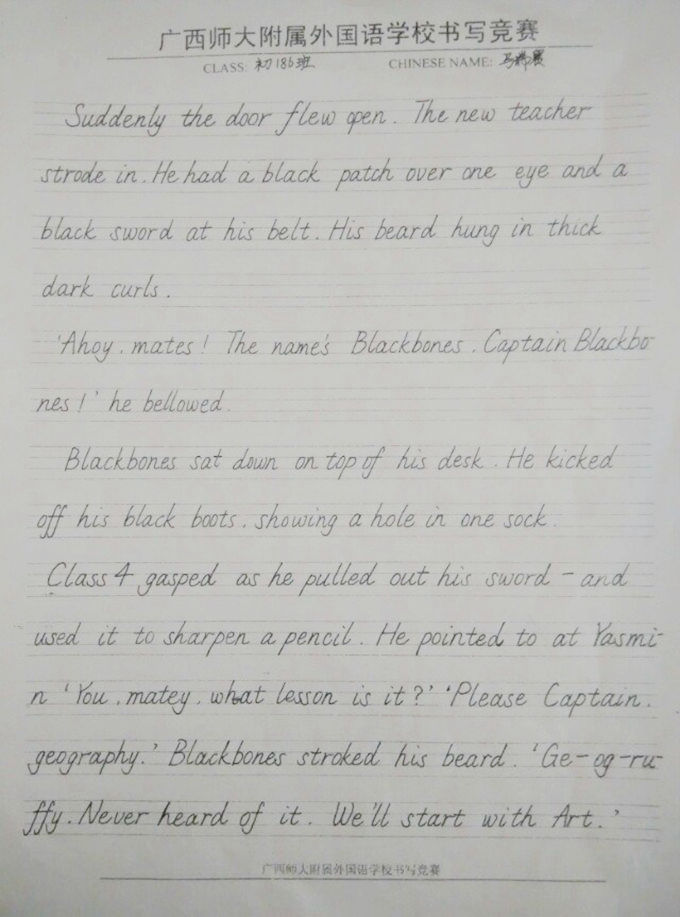 广西师大附属外国语学校书写竞赛
CLASS: 初186班 CHINESE NAME: 马
Suddenly the door flew open. The new teacher
strode in. He had a black patch over one eye and a
black sword at his belt. His beard hung in thick
dark curls.
'Ahoy, mates! The name's Blackbones, Captain Blackbo-
nes!' he bellowed.
Blackbones sat down on top of his desk. He kicked
off his black boots, showing a hole in one sock.
Class 4 gasped as he pulled out his sword - and
used it to sharpen a pencil. He pointed to at Yasmi-
n 'You, matey, what lesson is it?' 'Please Captain,
geography.' Blackbones stroked his beard. 'Ge-og-ru-
ffy. Never heard of it. We'll start with Art.'
广西师大附属外国语学校书写竞赛